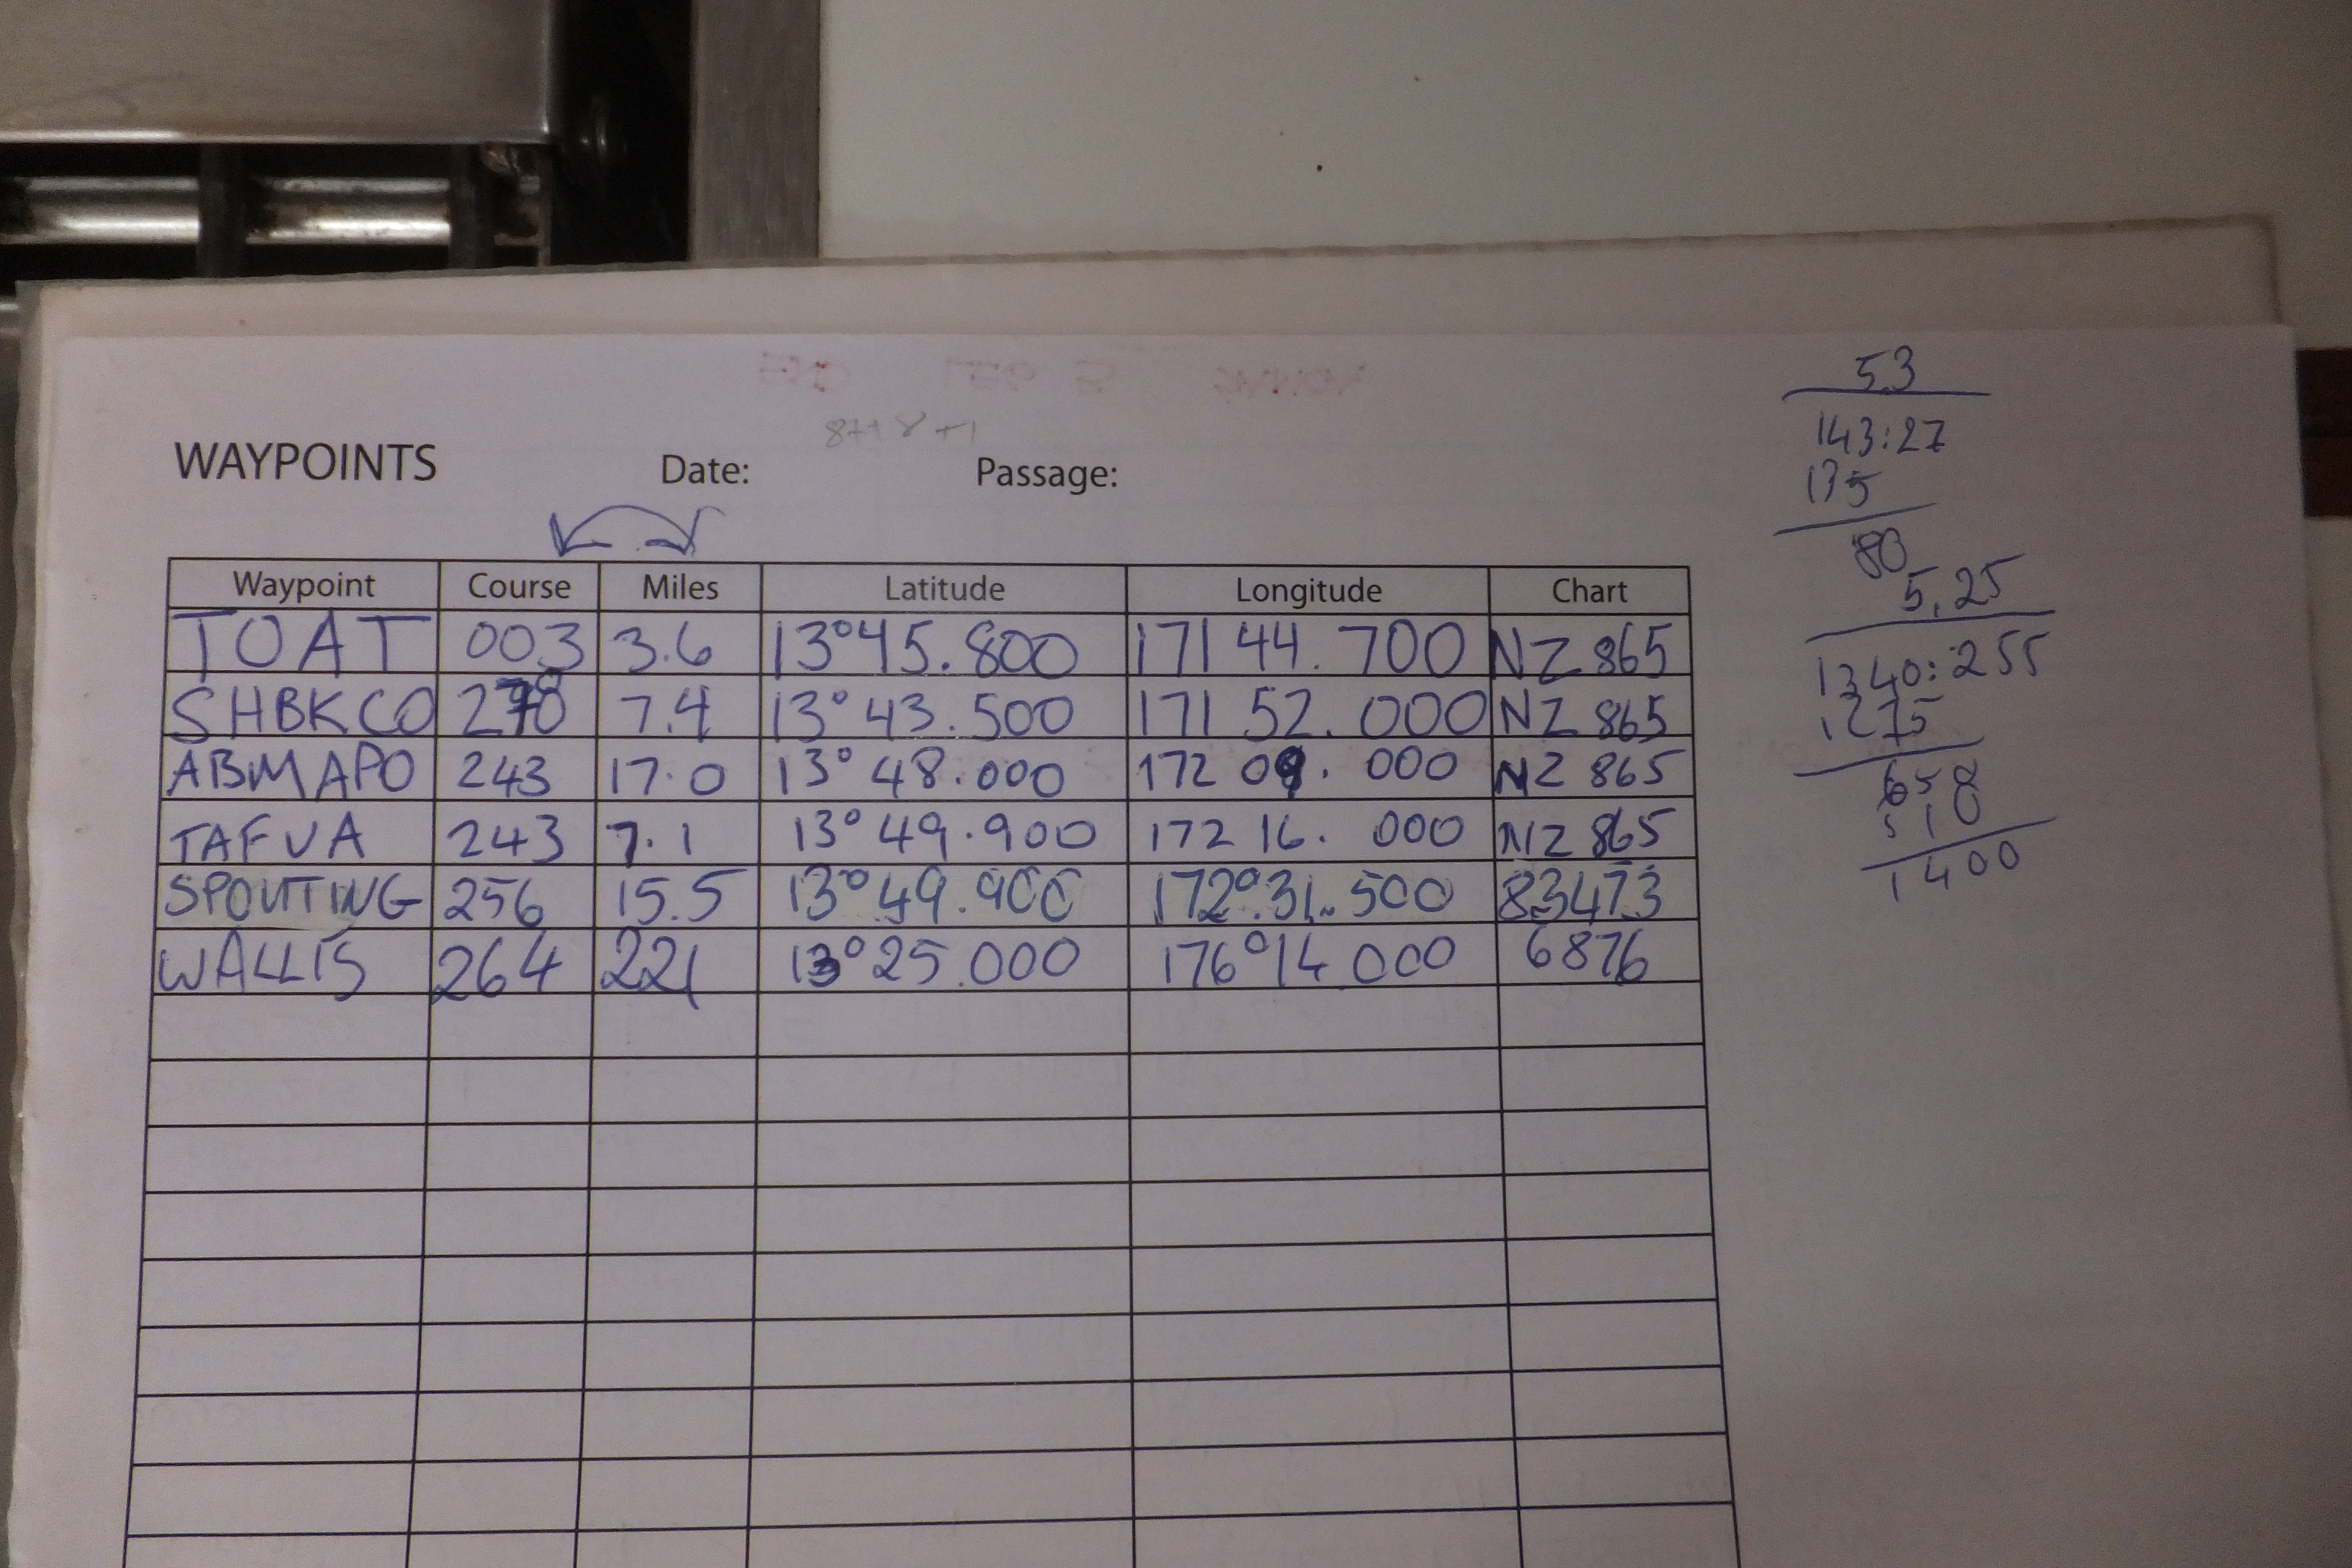 8++8+1
WAYPOINTS Date: Passage:
Waypoint Course Miles Latitude Longitude Chart
TOAT 003 3.6 13°45.800 171 44.700 NZ 865
SHBKCO 278 7.4 13°43.500 171 52.000 NZ 865
ABMAPO 243 17.0 13°48.000 172 09.000 NZ 865
TAFUA 243 7.1 13°49.900 172 16.000 NZ 865
SPOUTING 256 15.5 13°49.900 172°31.500 83473
WALLIS 264 221 13°25.000 176°14.000 6876
53
143:27
135
80
5,25
1340:255
1275
650
510
1400